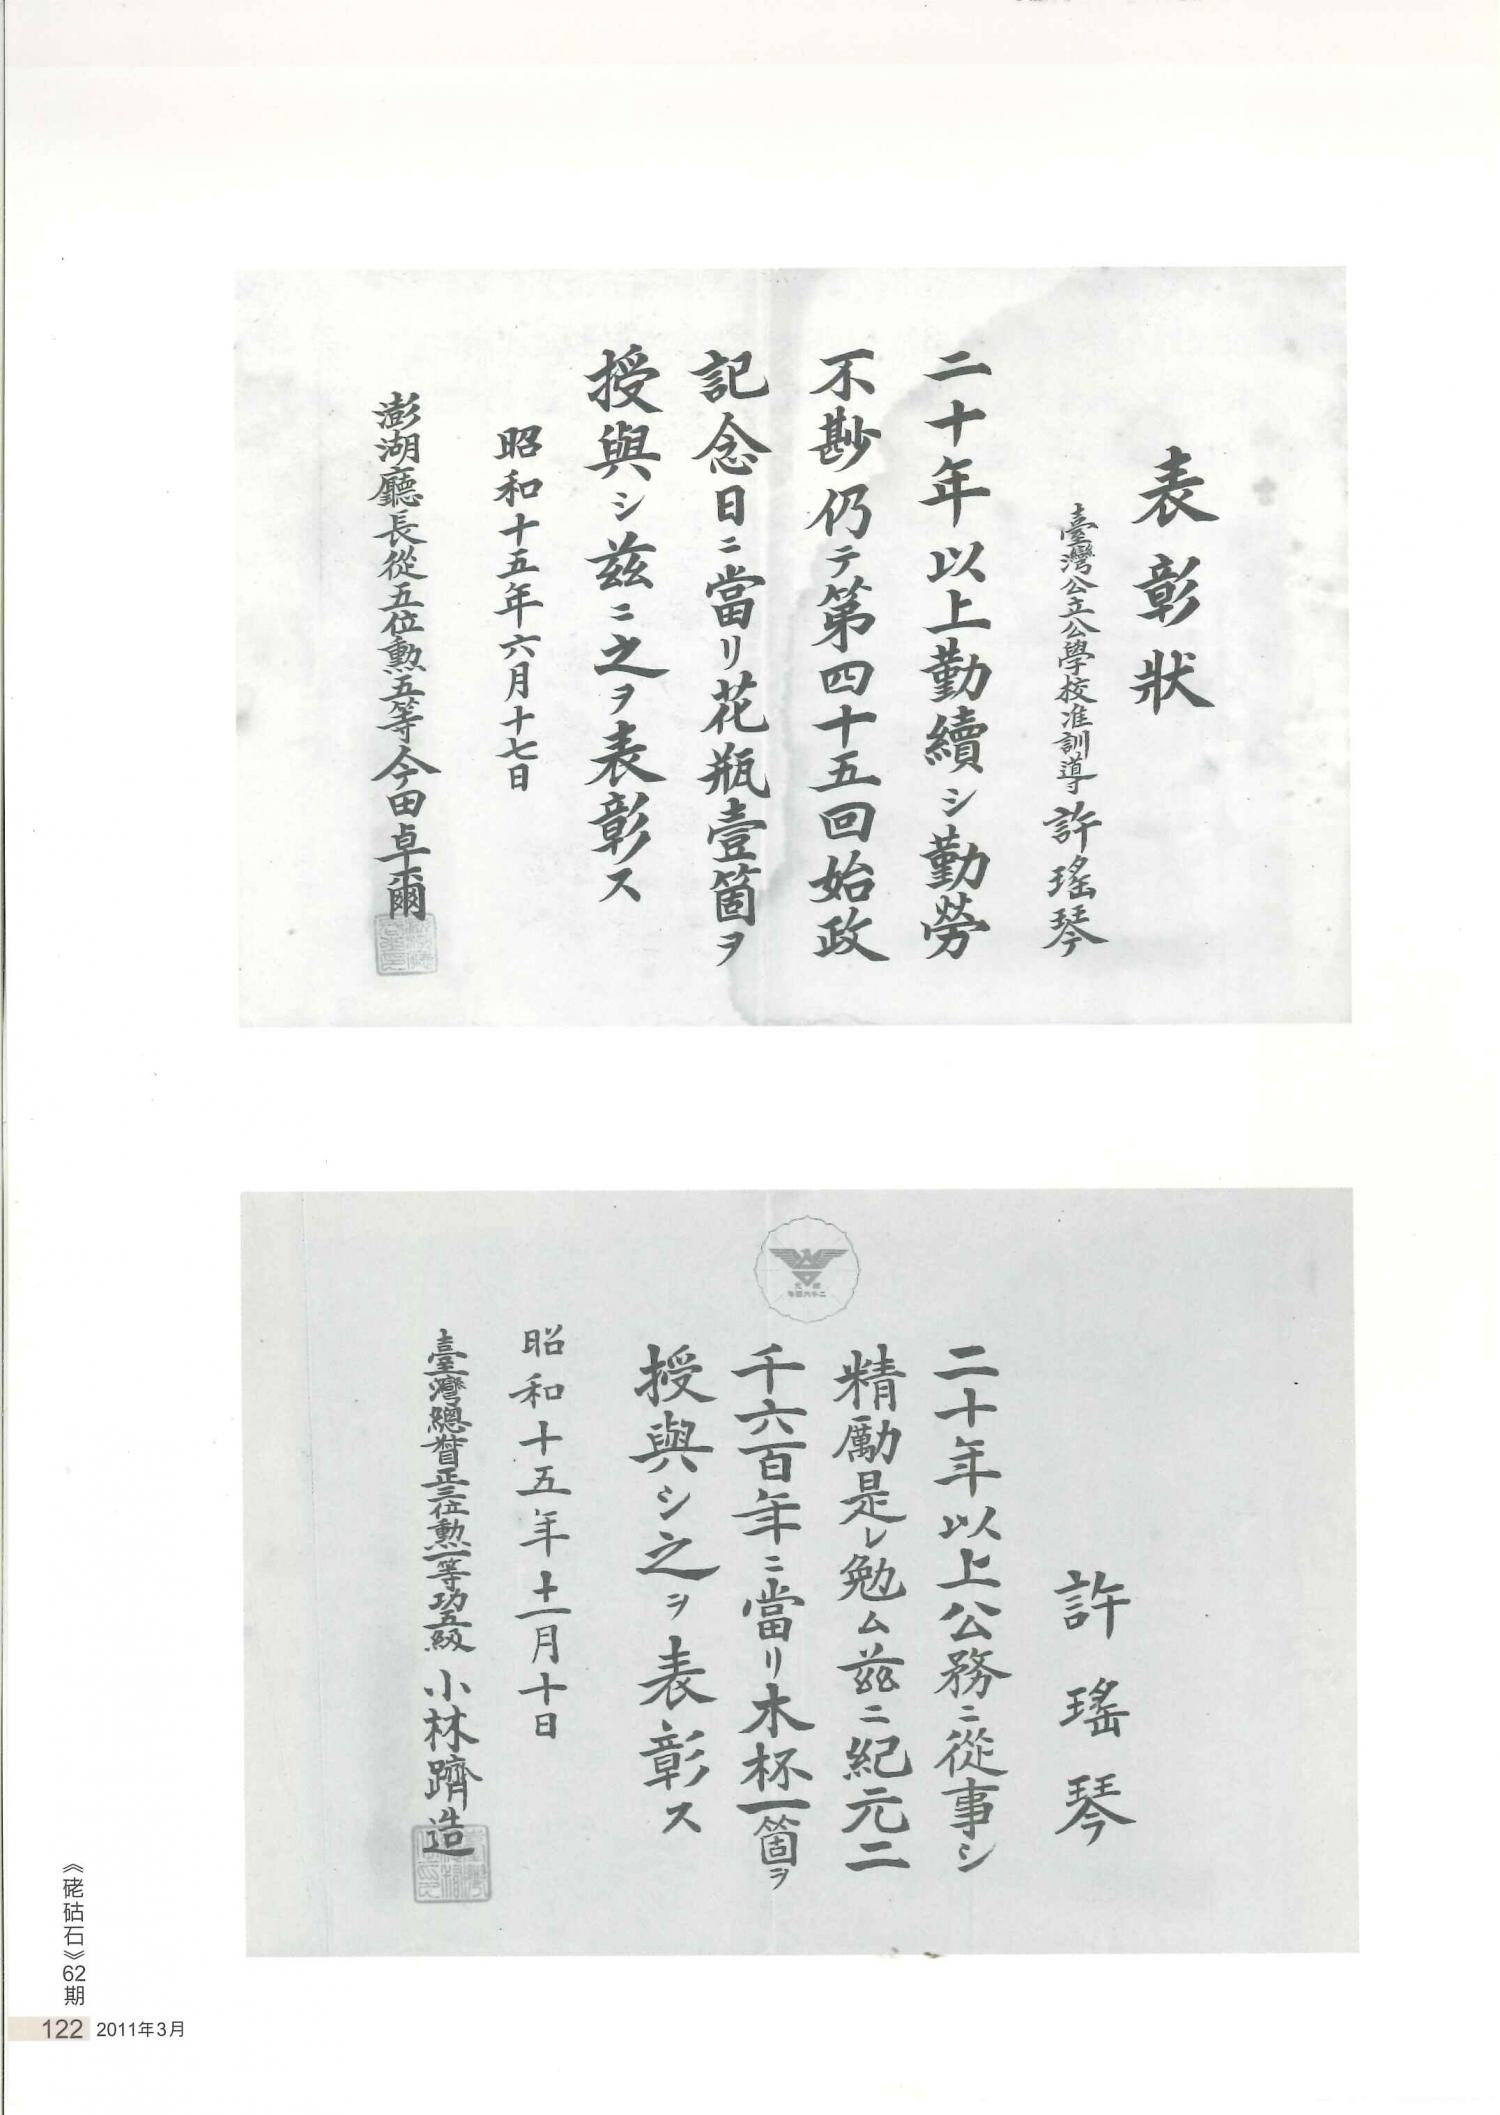 表彰狀
臺灣公立公學校准訓導 許瑤琴
二十年以上勤續シ勤勞
不尠仍テ第四十五回始政
記念日ニ當リ花瓶壹箇ヲ
授與シ茲ニ之ヲ表彰ス
昭和十五年六月十七日
澎湖廳長從五位勲五等今田卓爾
許瑤琴
二十年以上公務ニ從事シ
精勵是レ勉ム茲ニ紀元二
千六百年ニ當リ木杯一箇ヲ
授與シ之ヲ表彰ス
昭和十五年十一月十日
臺灣總督正三位勲一等功五級 小林躋造
《硓𥑮石》62期
122 2011年3月